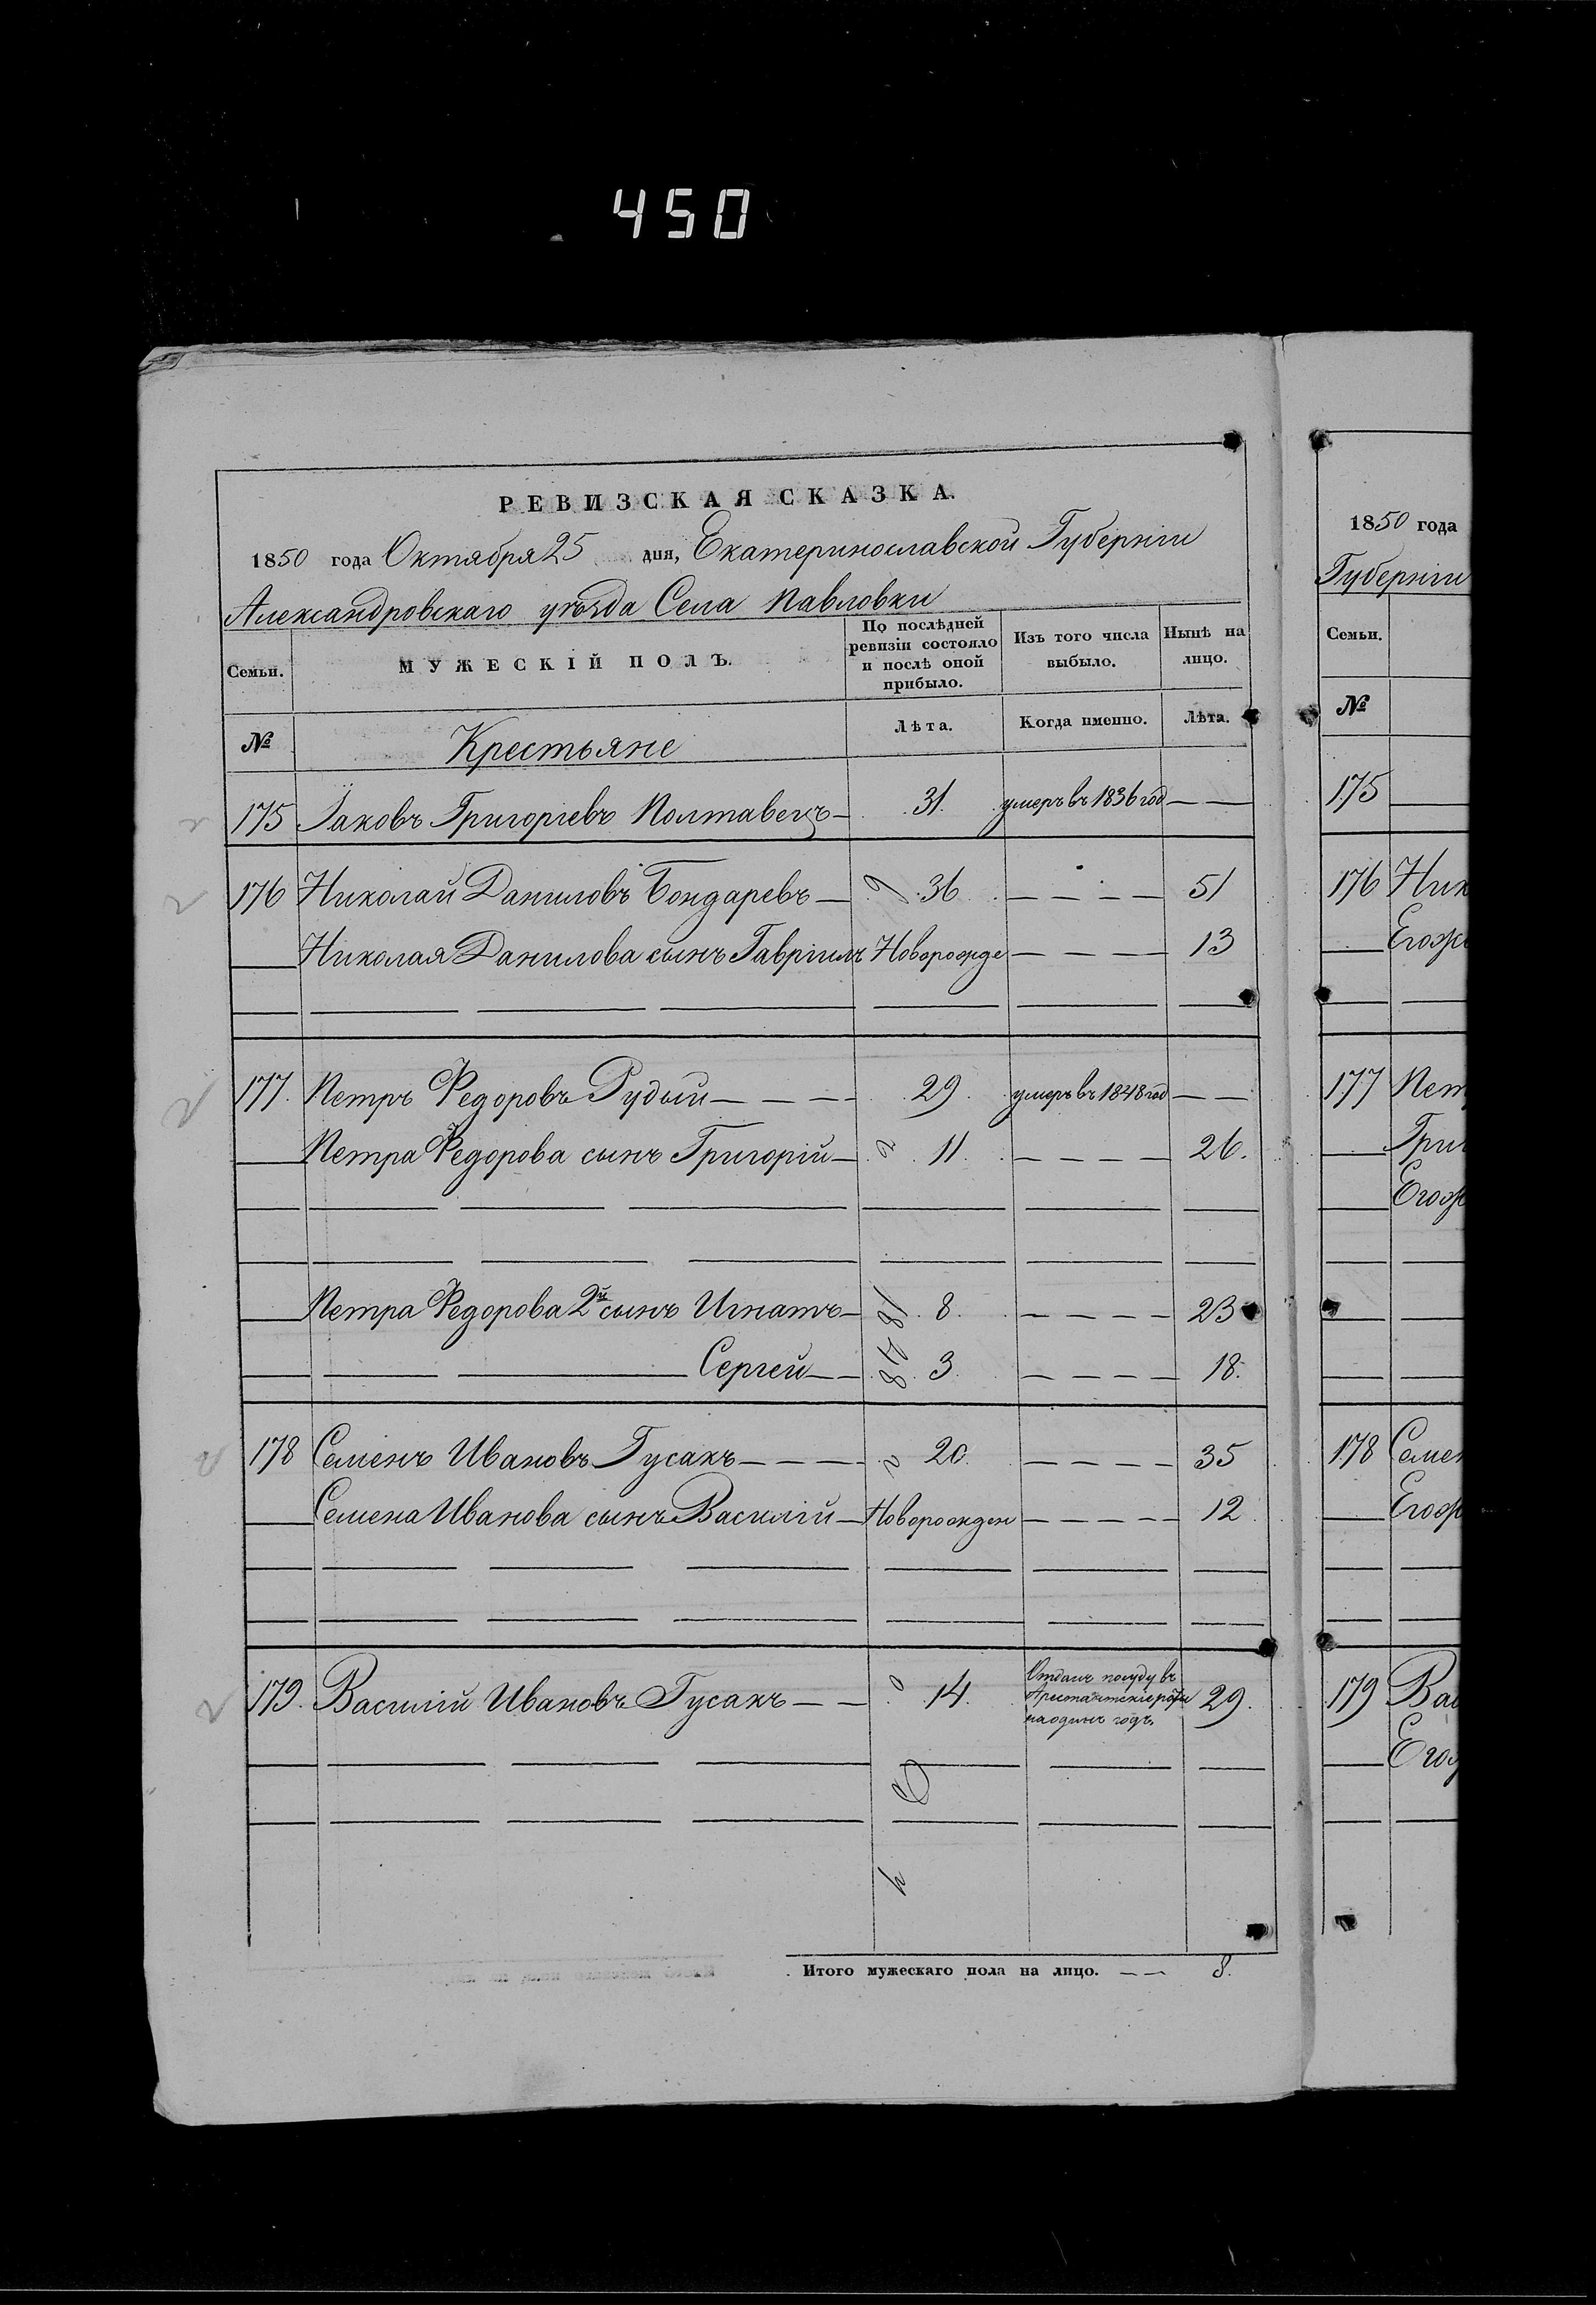 450
РЕВИЗСКАЯ СКАЗКА.
1850 года Октября 25 дня, Екатеринославской Губерніи
Александровскаго уѣзда Села Павловки
Семьи. МУЖЕСКІЙ ПОЛЪ. По послѣдней ревизіи состояло и послѣ оной прибыло. Изъ того числа выбыло. Нынѣ на лицо.
№ Крестьяне Лѣта. Когда именно. Лѣта.
175 Іаковъ Григоріевъ Полтавецъ 31. умеръ въ 1836 год
176 Николай Даниловъ Бондаревъ 36 51
Николая Данилова сынъ Гавріилъ Новорожде 13
177. Петръ Федоровъ Рудый 29. умеръ въ 1848 год
Петра Федорова сынъ Григорій 11. 26.
Петра Федорова 2й сынъ Игнатъ 8. 23
Сергей 3. 18.
178 Семенъ Ивановъ Гусакъ 20. 35
Семена Иванова сынъ Василій Новорожден 12.
179. Василій Ивановъ Гусакъ 14. Отданъ посуду въ Арестантскіе роты на одинъ годъ. 29.
Итого мужескаго пола на лицо. 8.
1850 года
Губерніи
Семьи.
№
175
176 Ник
Егож
177 Пет
Григ
Егож
178 Семен
Егож
179 Вас
Егож